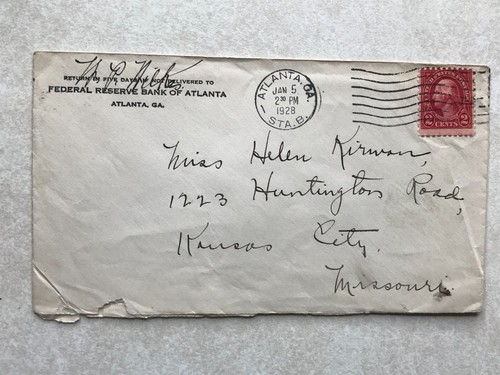 RETURN IN FIVE DAYS IF NOT DELIVERED TO
FEDERAL RESERVE BANK OF ATLANTA
ATLANTA, GA.
ATLANTA, GA.
JAN 5
2 30 PM
1928
STA. B.
2 CENTS 2
Miss Helen Kirwan,
1223 Huntington Road,
Kansas City.
Missouri.